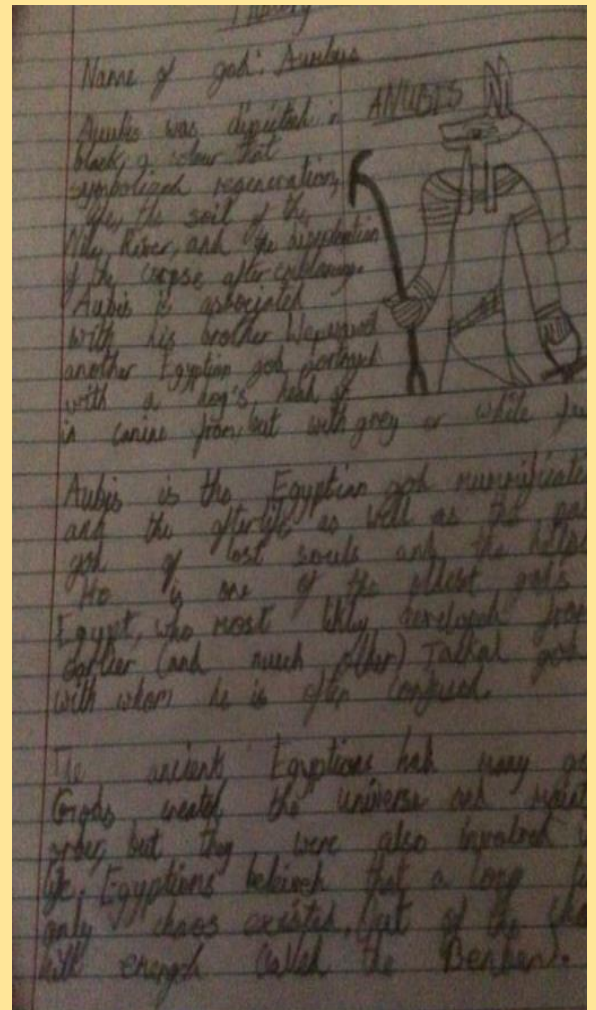 History
Name of god: Aunbis
ANUBIS
Aunbis was depicted in
black, a colour that
symbolized regeneration,
life, the soil of the
Nile River, and the
of the corpse after embalming.
Aubis is associated
with his brother Wepwawet
another Egyptian god portrayed
with a dog's head or
in canine from, but with grey or white fu
Aubis is the Egyptian god mummificati
and the afterlife as well as the pat
god of lost souls and the helpl
He is one of the oldest gods
Egypt, who most likly developed from
earlier (and much other) Jalkal god
with whom he is often confused.
The ancient Egyptions had many go
Gods created the universe and maint
order, but they were also involved i
life. Egyptions belived that a long ti
only chaos existed. Out of the cha
hill emerged called the Benben.